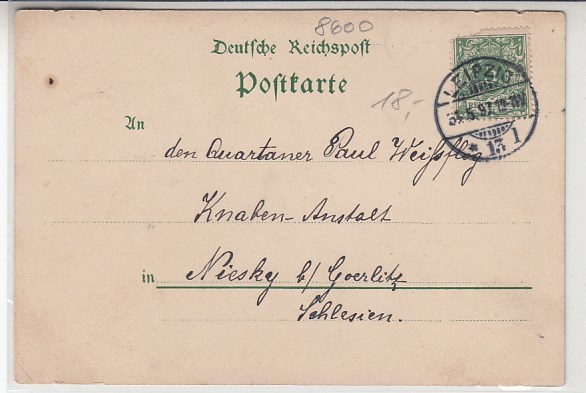 8600
Deutsche Reichspost
Postkarte
18,-
LEIPZIG
* 13 1
An
den Quartaner Paul Weißflog
Knaben-Anstalt
in Niesky b/ Goerlitz
Schlesien.